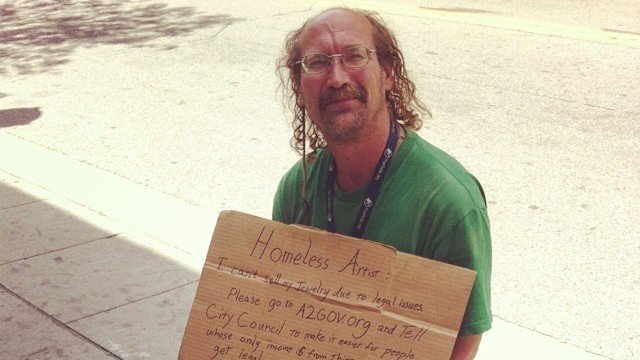 Homeless Artist:
I can't sell my Jewelry due to legal issues.
Please go to A2GOV.org and Tell
City Council to make it easier for people
whose only income is from Their
get legal